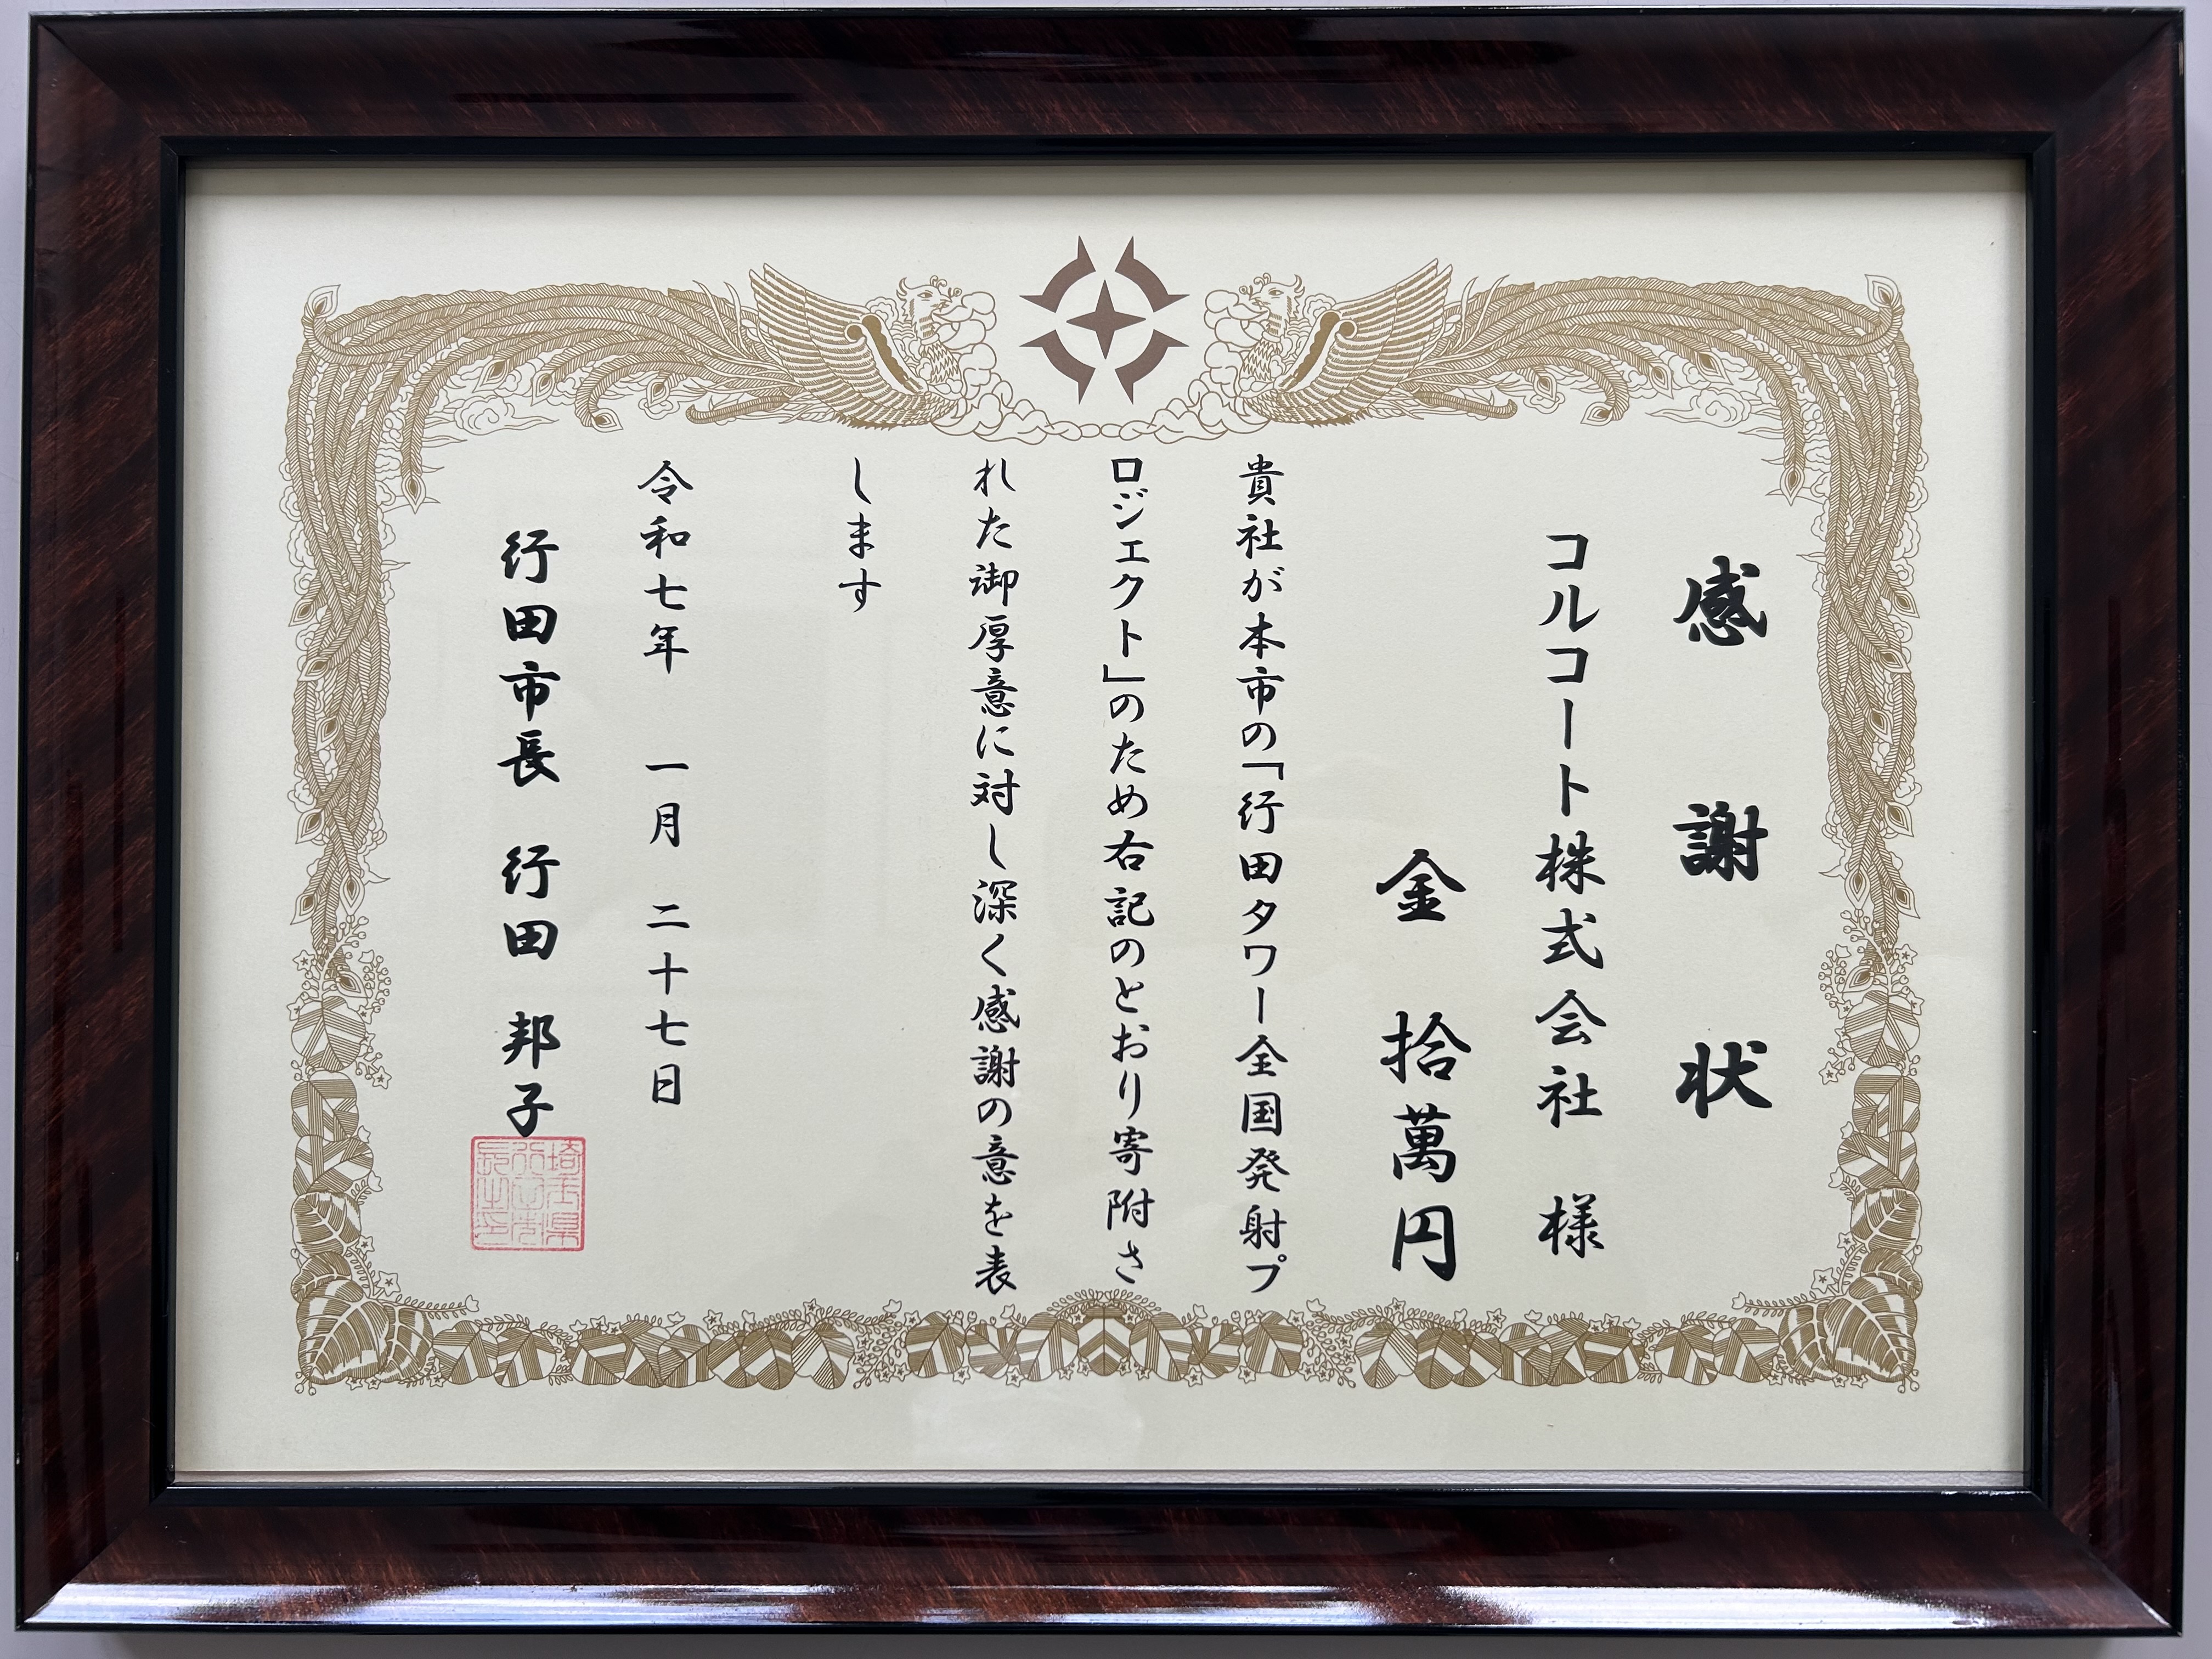 感謝状
コルコート株式会社 様
金 拾萬円
貴社が本市の「行田タワー全国発射プ
ロジェクト」のため右記のとおり寄附さ
れた御厚意に対し深く感謝の意を表
します
令和七年 一月 二十七日
行田市長 行田 邦子
埼玉県
行田市
長之印